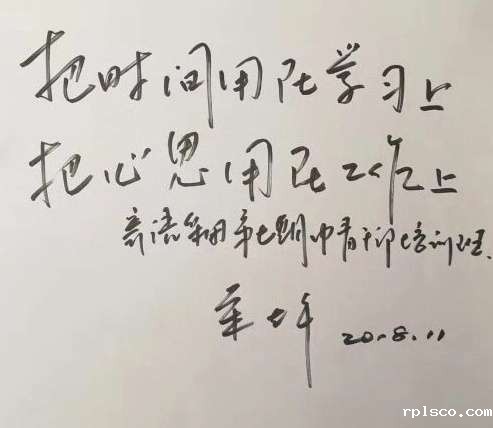 把时间用在学习上
把心思用在工作上
寄语第七期中青干部培训班.
20.8.11
rplsco.com